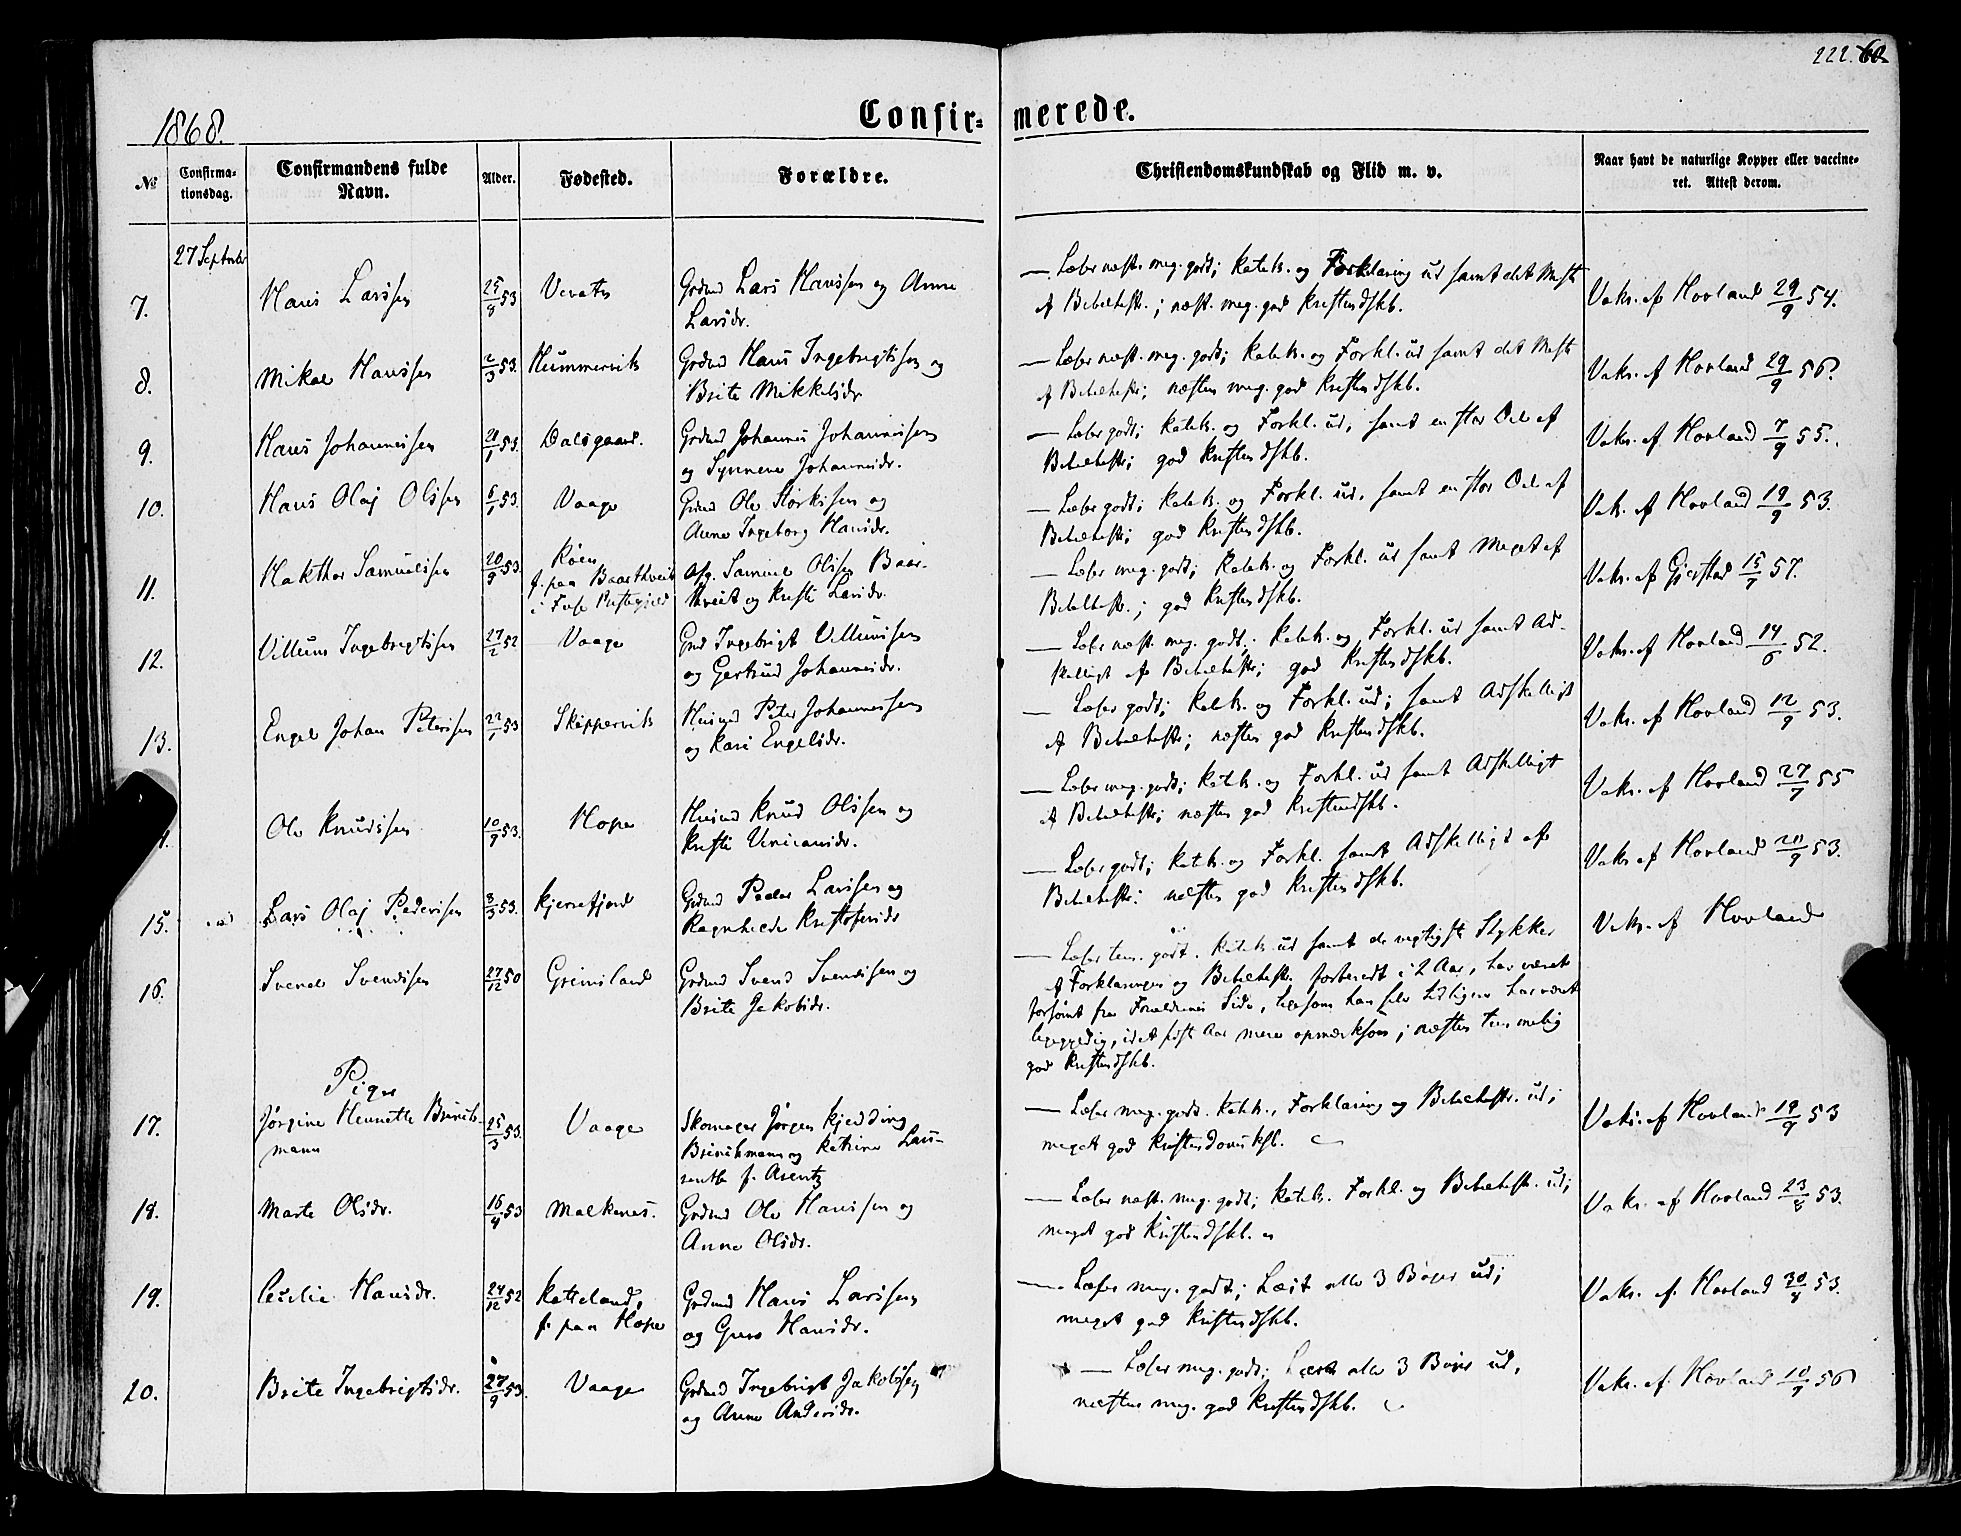 222. 60
1868.
Confir- merede.
№
Confirma-
tionsdag.
Confirmandens fulde
Navn.
Alder.
Fødested.
Forældre.
Christendomskundskab og Flid m. v.
Naar havt de naturlige Kopper eller vaccine-
ret. Attest derom.
27 Septmbr
7. Hans Larssen 25/8 53 Grdmd Lars Hanssen og Anne
Larsdr.
— Læser næst. meg. godt; Katek. og Forklaring ud samt det Meste
af Bibelhist.; næst. meg. god Kristendskb.
Vaks. af Hovland 29/9 54.
8. Mikal Hanssen 2/3 53. Hummervik Grdmd Hans Ingebrigtssen og
Brite Mikkelsdr
— Læser næst. meg. godt; Katek. og Forkl. ud samt det Meste
af Bibelhistr; næsten meg. god Kristendskb.
Vaks. af Hovland 29/9 56.
9. Hans Johannessen 53. Dalsgaard. Grdmd Johannes Johannessen
og Synneve Johannesdr.
— Læser godt; Katek. og Forkl. ud, samt en stor Del af
Bibelhistr; god Kristendskb.
Vaks. af Hovland 7/9 55.
10. Hans Olaj Olssen 6/1 53. Vaage Grdmd Ole Størkssen og
Anne Ingeborg Hansdr.
— Læser godt; Katek. og Forkl. ud, samt en stor Del af
Bibelhistr; god Kristendskb.
Vak. af Hovland 19/9 53.
11. Hakthor Samuelssen 20/9 53. Røen
f. paa Baarthveit
i Fuse Præstegjeld
Afg. Samuel Olssen Baar-
thveit og Kristi Larsdr.
— Læser meg. godt; Katek. og Forkl. ud samt Meget af
Bibelhistr.; god Kristendskb.
Vaks. af Gjerstad 15/7 57.
12. Villum Ingebrigtssen 27/2 52 Vaage Grmd Ingebrigt Villumssen
og Gertrud Johannesdr.
— Læser næst. meg. godt; Katek. og Forkl. ud samt Ad-
skilligt af Bibelhistr; god Kristendskb.
Vaks. af Hovland 14/6 52.
13. Engel Johan Peterssen 22/1 53 Skippervik Husmd Peter Johannessen
og Kari Engelsdr.
— Læser godt; Katek. og Forkl. ud; samt Adskilligt
af Bibelhistr; næsten god Kristendskb.
Vaks. af Hovland 12/9 53.
Ole Knudssen 10/9 53. Hope Husmd Knud Olssen og
Kristi
— Læser meg. godt; Katek. og Forkl. ud samt Adskilligt
af Bibelhistr; næsten god Kristendskb.
Vaks. af Hovland 27/7 55
15. Lars Olaj Pederssen 8/3 53. Kjersefjord Grdmd Peder Larssen og
Ragnhilde Kristofersdr
— Læser godt; Katek. og Forkl. samt Adskilligt af
Bibelhistr: næsten god Kristendskb.
Vaks. af Hovland 20/9 53.
16. Svend Svendssen 27/12 50 Grimsland Grdmd Svend Svendssen og
Brite Jakobsdr.
— Læser tem. godt. Katek. ud samt de vigtigste Stykker
af Forklaringen og Bibelhistr. forberedt i 2 Aar, har været
forsømt fra Forældrenes Side, ligesom han selv tidligere har været
ligegyldig, i det sidste Aar mere opmærksom; næsten temmelig
god Kristendskb.
Vaks. af Hovland
Piger
17. Jørgine Hennette Brinch-
mann
25/3 53. Vaage Skomager Jørgen Kjedding
Brinchmann og Katrine Lau-
rentse f. Arentz
— Læser meg. godt. Katek., Forklaring og Bibelhistr. ud;
meget god Kristendomskb.
Vaks. af Hovland 19/9 53
18. Marte Olsdr. 16/4 53 Malkenes. Grdmd Ole Hanssen og
Anne Olsdr.
— Læser næst. meg. godt; Katek. Forkl. og Bibelhistr. ud;
meget god Kristendskb.
Vaks. af Hovland 23/8 53.
19. Cecilie Hansdr. 24/12 52 Katteland,
f. paa Hope
Grdmd Hans Larssen
og Guro Hansdr.
— Læser meg. godt; Læst alle 3 Bøger ud;
meget god Kristendskb.
Vaks. af Hovland 53.
20. Brite Ingebrigtsdr. 27/9 53. Vaage Grdmd Ingebrigt Jakobssen
og Anne Andersdr.
— Læser meg. godt; Lært alle 3 Bøger ud,
næsten meg. god Kristendskb.
Vaks. af Hovland 10/7 56